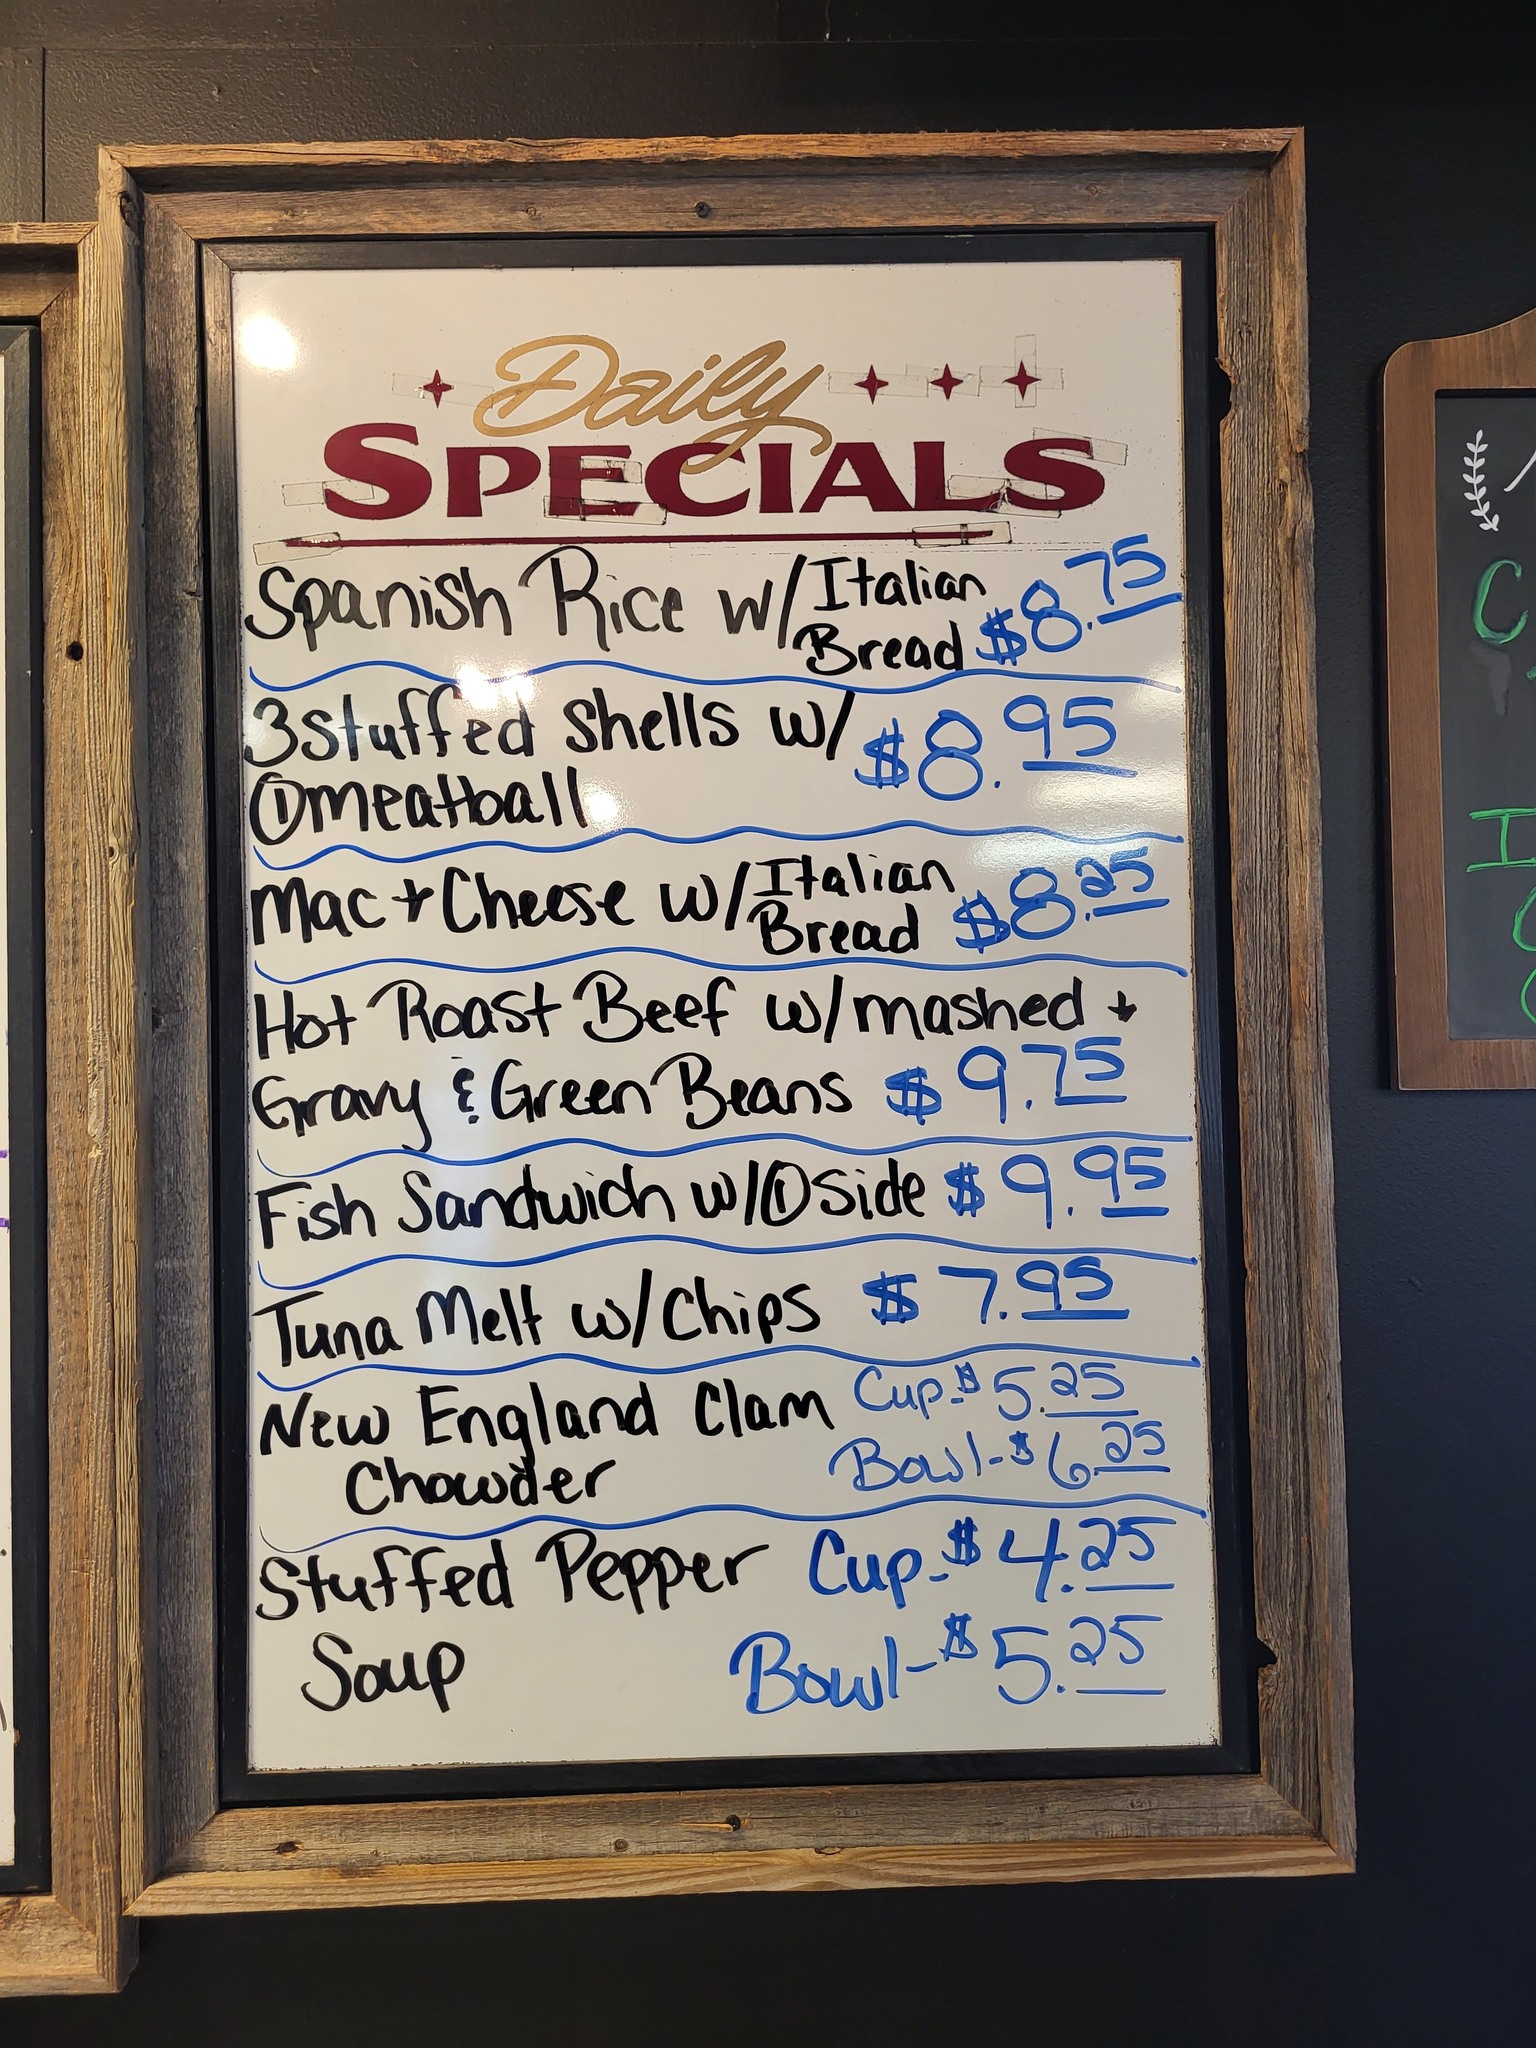 Daily
SPECIALS
Spanish Rice w/ Italian Bread $8.75
3 stuffed shells w/ $8.95
① meatball
Mac + Cheese w/ Italian Bread $8.25
Hot Roast Beef w/ mashed +
Gravy & Green Beans $9.75
Fish Sandwich w/ ① side $9.95
Tuna Melt w/ Chips $7.95
New England Clam Cup-$5.25
Chowder Bowl-$6.25
Stuffed Pepper Cup-$4.25
Soup Bowl-$5.25